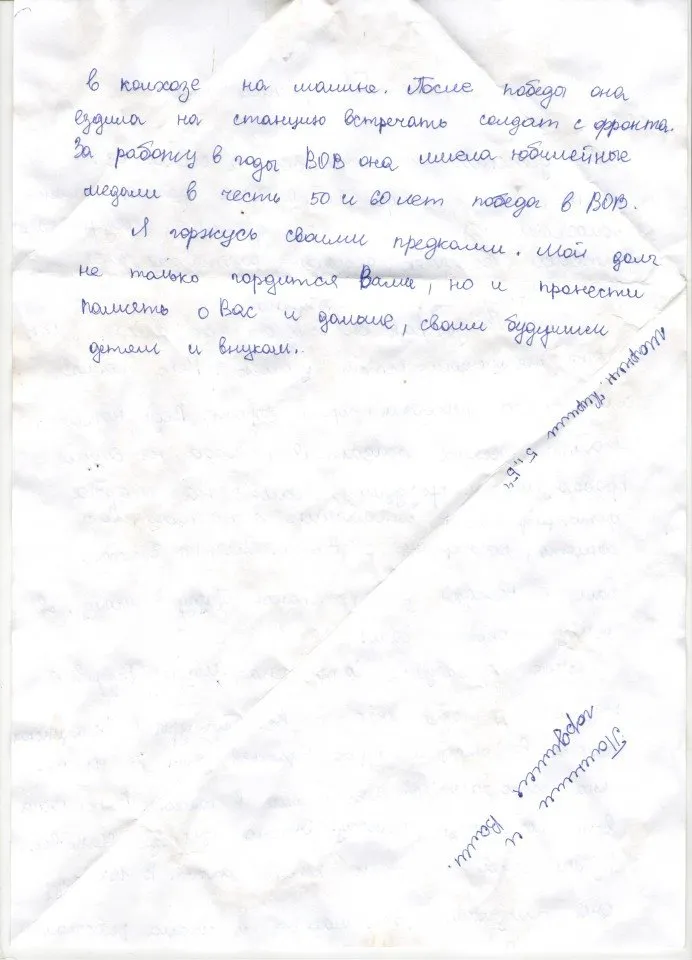 в колхозе на машине. После победы она
ездила на станцию встречать солдат с фронта.
За работу в годы ВОВ она имела юбилейные
медали в честь 50 и 60 лет победы в ВОВ.
Я горжусь своими предками. Мой долг
не только гордится Вами, но и пронести
память о Вас и дальше, своим будущим
детям и внукам.
Кирилл 5 "Б"
Помним
и гордимся
Вами.